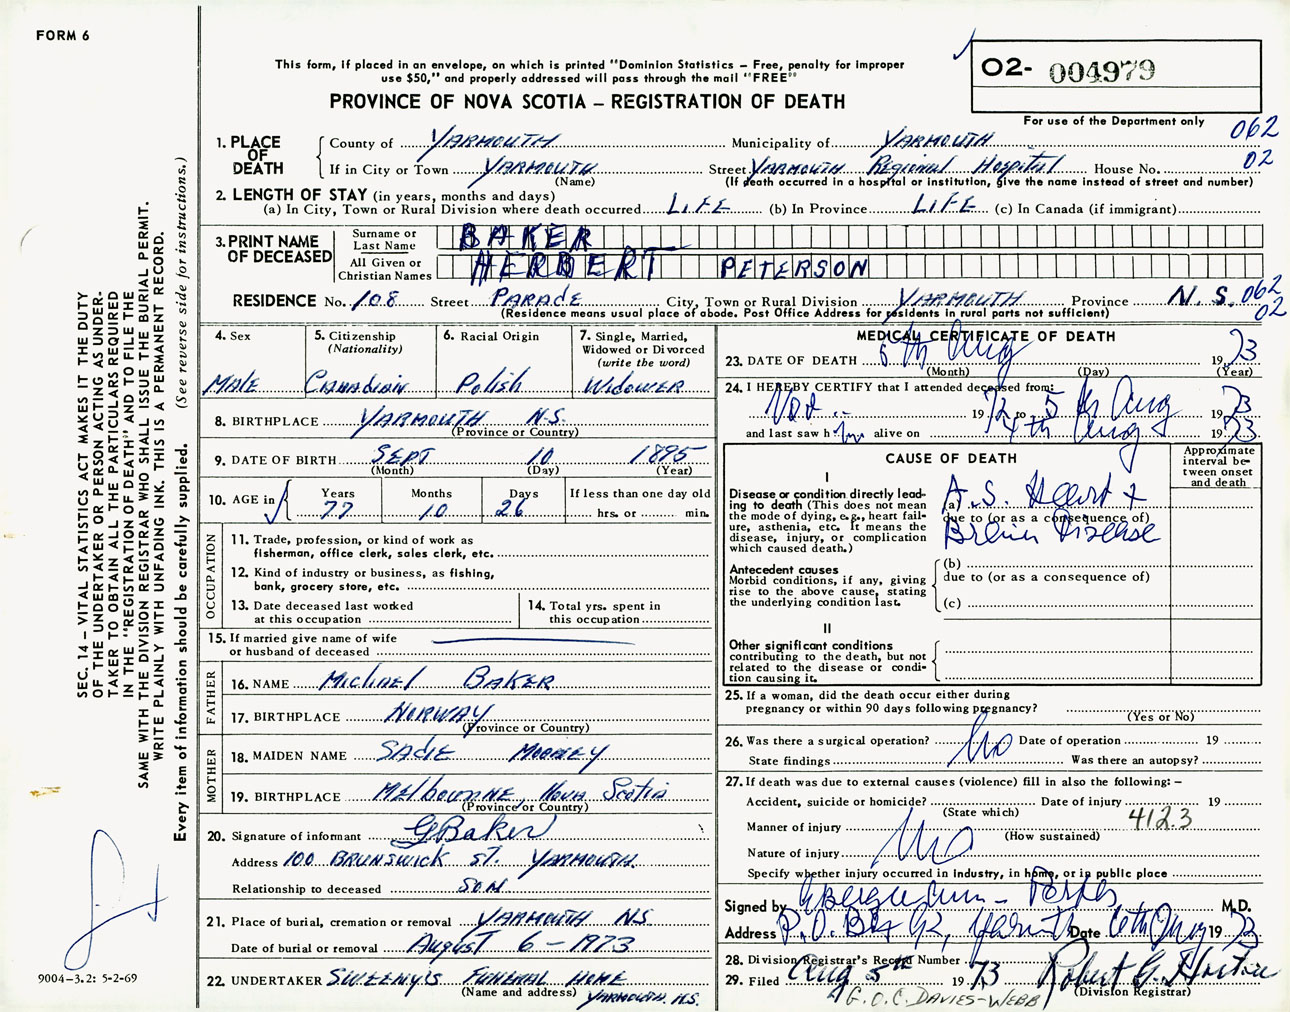 FORM 6
This form, if placed in an envelope, on which is printed "Dominion Statistics – Free, penalty for improper
use $50," and properly addressed will pass through the mail "FREE"
PROVINCE OF NOVA SCOTIA – REGISTRATION OF DEATH
02- 004979
For use of the Department only
062
02
1. PLACE OF DEATH
County of YARMOUTH Municipality of YARMOUTH
If in City or Town YARMOUTH Street YARMOUTH Regional Hospital House No.
(Name) (If death occurred in a hospital or institution, give the name instead of street and number)
2. LENGTH OF STAY (in years, months and days)
(a) In City, Town or Rural Division where death occurred LIFE (b) In Province LIFE (c) In Canada (if immigrant)
3. PRINT NAME OF DECEASED
Surname or Last Name BAKER
All Given or Christian Names HERBERT PETERSON
RESIDENCE No. 108 Street PARADE City, Town or Rural Division YARMOUTH Province N.S. 062
02
(Residence means usual place of abode. Post Office Address for residents in rural parts not sufficient)
4. Sex
MALE
5. Citizenship
(Nationality)
CANADIAN
6. Racial Origin
Polish
7. Single, Married,
Widowed or Divorced
(write the word)
WIDOWER
8. BIRTHPLACE YARMOUTH N.S.
(Province or Country)
9. DATE OF BIRTH SEPT 10 1895
(Month) (Day) (Year)
10. AGE in
Years Months Days If less than one day old
77 10 26 hrs. or min.
OCCUPATION
11. Trade, profession, or kind of work as
fisherman, office clerk, sales clerk, etc.
12. Kind of industry or business, as fishing,
bank, grocery store, etc.
13. Date deceased last worked
at this occupation
14. Total yrs. spent in
this occupation
15. If married give name of wife
or husband of deceased
FATHER
16. NAME Michael BAKER
17. BIRTHPLACE NORWAY
(Province or Country)
MOTHER
18. MAIDEN NAME SADIE MOONEY
19. BIRTHPLACE Melbourne, Nova Scotia
(Province or Country)
20. Signature of informant G Baker
Address 100 BRUNSWICK ST. YARMOUTH.
Relationship to deceased SON
21. Place of burial, cremation or removal YARMOUTH N.S.
Date of burial or removal August 6 – 1973
22. UNDERTAKER SWEENY'S FUNERAL HOME
(Name and address) YARMOUTH. N.S.
MEDICAL CERTIFICATE OF DEATH
23. DATE OF DEATH 5th Aug 1973
(Month) (Day) (Year)
24. I HEREBY CERTIFY that I attended deceased from:
Nov. 1972 to 5th Aug 1973
and last saw him alive on 4th Aug 1973.
CAUSE OF DEATH
Approximate
interval be-
tween onset
and death
I
Disease or condition directly lead-
ing to death (This does not mean
the mode of dying, e.g., heart fail-
ure, asthenia, etc. It means the
disease, injury, or complication
which caused death.)
(a) A.S. Heart +
due to (or as a consequence of)
Brain Disease
Antecedent causes
Morbid conditions, if any, giving
rise to the above cause, stating
the underlying condition last.
(b)
due to (or as a consequence of)
(c)
II
Other significant conditions
contributing to the death, but not
related to the disease or condi-
tion causing it.
25. If a woman, did the death occur either during
pregnancy or within 90 days following pregnancy?
(Yes or No)
26. Was there a surgical operation? No Date of operation 19
State findings Was there an autopsy?
27. If death was due to external causes (violence) fill in also the following: –
Accident, suicide or homicide? Date of injury 19
(State which)
412.3
Manner of injury No
(How sustained)
Nature of injury
Specify whether injury occurred in industry, in home, or in public place
Signed by M.D.
Address P.O. Box Date 1973
28. Division Registrar's Record Number
29. Filed Aug 5th 1973 Robert G. Horton
(Division Registrar)
G.O.C. DAVIES-WEBB
SEC. 14 – VITAL STATISTICS ACT MAKES IT THE DUTY
OF THE UNDERTAKER OR PERSON ACTING AS UNDER-
TAKER TO OBTAIN ALL THE PARTICULARS REQUIRED
IN THE "REGISTRATION OF DEATH" AND TO FILE THE
SAME WITH THE DIVISION REGISTRAR WHO SHALL ISSUE THE BURIAL PERMIT.
WRITE PLAINLY WITH UNFADING INK. THIS IS A PERMANENT RECORD.
Every item of information should be carefully supplied. (See reverse side for instructions.)
9004-3.2: 5-2-69